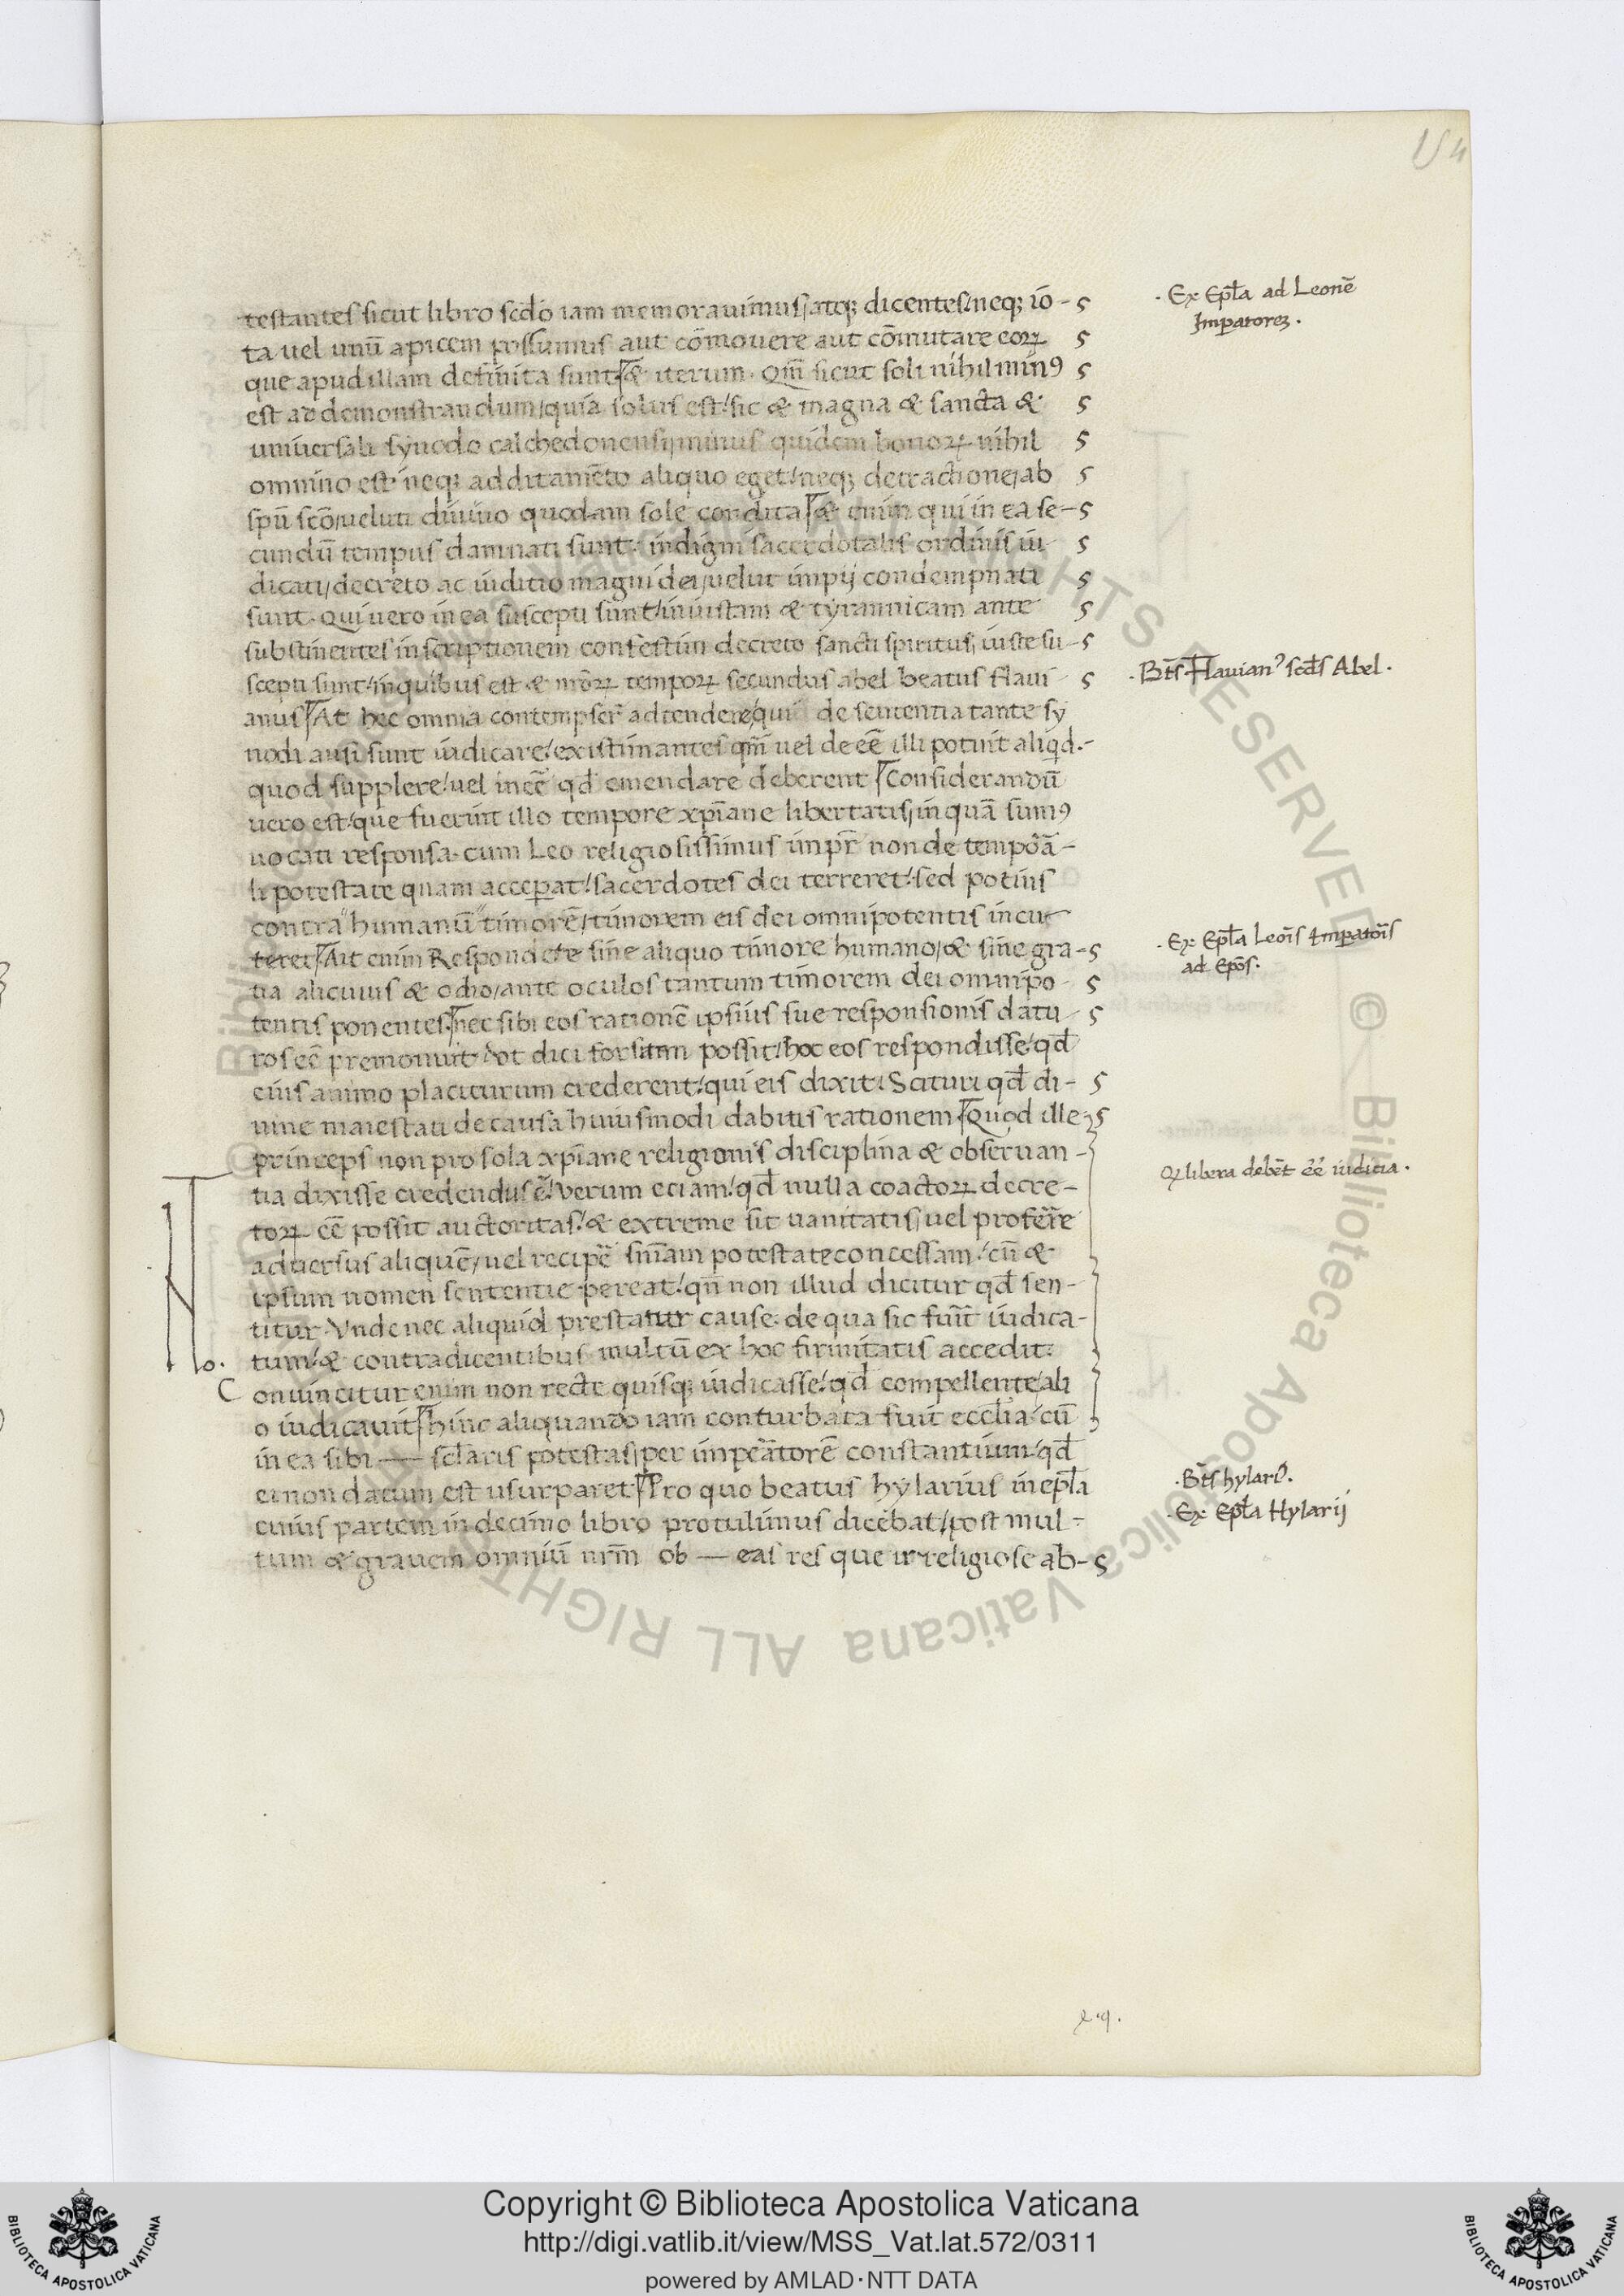 154
testantes sicut libro scdo iam memoravimus/atqꝫ dicentes/neqꝫ io-
ta vel unū apicem possumus aut cōmovere aut cōmutare eoꝝ
que apud illam definita sunt & iterum. Qm̄ sicut soli nihil minꝰ
est ad demonstrandum/quia solus est/sic & magna & sancta &
universali synodo calchedonensi/minus quidem honoꝝ nihil
omnino est neqꝫ additamēto aliquo eget/neqꝫ detractione/ab
spū scō/veluti divino quodam sole condita & enim qui in ea se-
cundū tempus damnati sunt. indigni sacerdotalis ordinis iu
dicati/decreto ac iuditio magni dei/velut impij condempnati
sunt. Qui vero in ea suscepti sunt/iniustam & tyrannicam ante
substinentes inscriptionem confestim decreto sancti spiritus/iuste su-
scepti sunt/in quibus est & nr̄oꝝ tempoꝝ secundus abel beatus flavi
anus At hec omnia contempser̄ adtendere/qui de sententia tante sy
nodi ausi sunt iudicare/existimantes qm̄ vel de eē illi potuit aliqd.-
quod supplere/vel ineē qd emendare deberent Considerandū
vero est/que fuerint illo tempore xp̄iane libertatis/in quā sumꝰ
vocati responsa. cum Leo religiosissimus impr̄ non de tempora-
li potestate quam acceperat/sacerdotes dei terreret/sed potius
contra "humanū "timorē/timorem eis dei omnipotentis incu-
teret Ait enim Respondete sine aliquo timore humano/& sine gra-
tia alicuius & odio/ante oculos tantum timorem dei omnipo-
tentis ponentes nec sibi eos rationē ipsius sue responsionis datu-
ros eē premonuit. ut dici forsitam possit/hoc eos respondisse/qd̄
eius animo placiturum crederent/qui eis dixit. Scituri qd̄ di-
vine maiestati de causa huiusmodi dabitis rationem Quod ille
princeps non pro sola xp̄iane religionis disciplina & observan-
tia dixisse credendus ē/verum eciam/qd̄ nulla coactoꝝ decre-
toꝝ eē possit auctoritas/& extreme sit vanitatis/vel proferre
adversus aliquē/vel recipē sn̄iam potestate concessam/cū &
ipsum nomen sententie pereat/qn̄ non illud dicitur qd̄ sen-
titur. Unde nec aliquid prestatur cause. de qua sic fuīt iudica-
tum/& contradicentibus multū ex hoc firmitatis accedit.
Convincitur enim non recte quisqꝫ iudicasse/qd̄ compellente/ali
o iudicavit hinc aliquando iam conturbata fuit eccl̄ia/cū
in ea sibi — sclaris potestas/per imperatorē constantium/qd̄
ei non datum est usurparet Pro quo beatus hylarius in epl̄a
cuius partem in decimo libro protulimus dicebat/post mul-
tum & gravem omniū nrm̄ ob — eas res que irreligiose ab-
. Ex Epl̄a ad Leonē
Imperatorem.
. Bt̄s Flavianꝰ scd̄s Abel.
. Ex Epl̄a Leōis Imperatōis
ad Epōs.
Qꝫ libera debēt eē iudicia.
No.
. Bt̄s hylariꝰ.
. Ex Epl̄a Hylarij
Copyright © Biblioteca Apostolica Vaticana
http://digi.vatlib.it/view/MSS_Vat.lat.572/0311
powered by AMLAD·NTT DATA
BIBLIOTECA APOSTOLICA VATICANA
BIBLIOTECA APOSTOLICA VATICANA